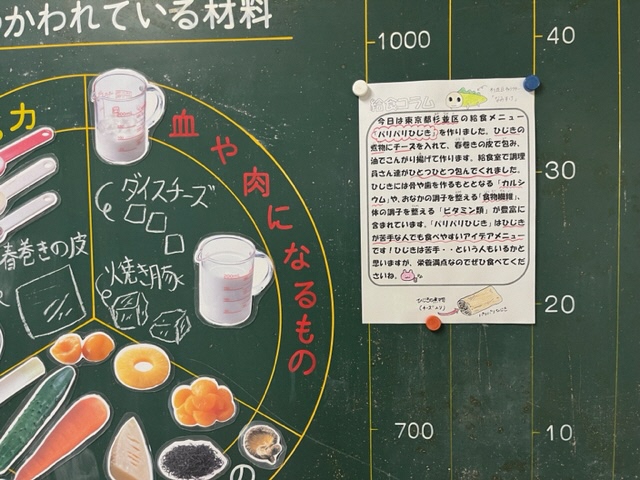 かわれている材料
力
血や肉になるもの
ダイスチーズ
春巻きの皮
焼き豚
の
1000
700
40
30
20
10
給食コラム
今日は東京都杉並区の給食メニュー
「パリパリひじき」を作りました。ひじきの
煮物にチーズを入れて、春巻きの皮で包み、
油でこんがり揚げて作ります。給食室で調理
員さん達がひとつひとつ包んでくれました。
ひじきには骨や歯を作るもととなる「カルシ
ウム」や、おなかの調子を整える「食物繊維」、
体の調子を整える「ビタミン類」が豊富に
含まれています。「パリパリひじき」はひじき
が苦手な人でも食べやすいアイデアメニュー
です！ひじきは苦手・・という人もいるかと
思いますが、栄養満点なのでぜひ食べてくだ
さいね。
ひじきの煮物